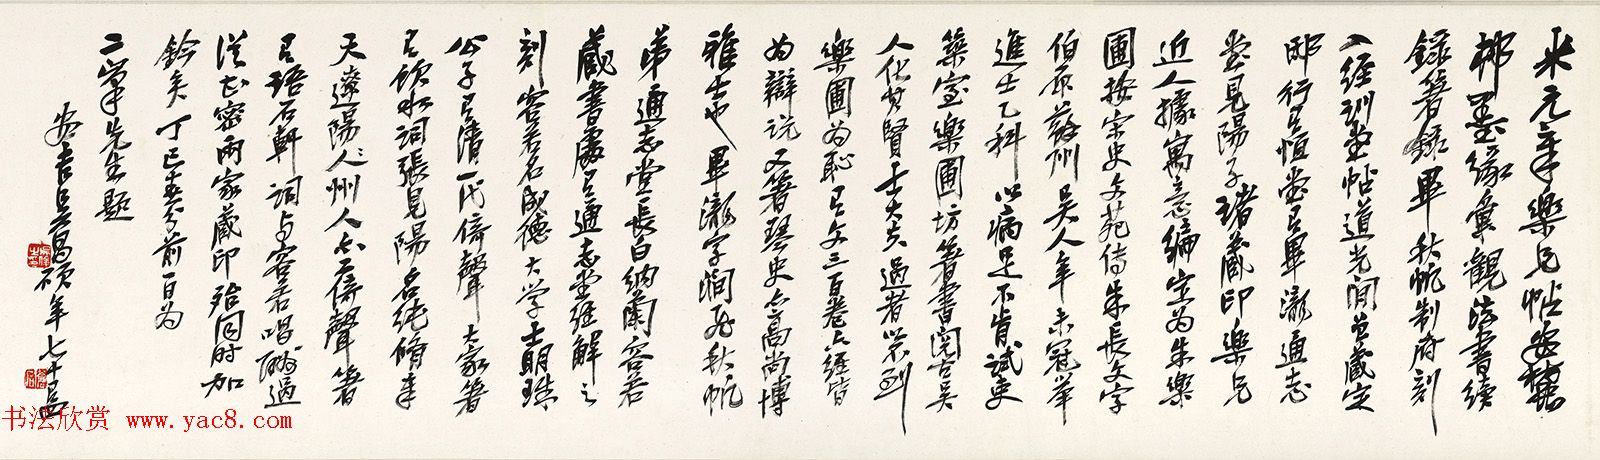 米元章樂兄帖安麓
邨墨緣彙觀法書續
錄著錄畢秋帆制府刻
入經訓堂帖道光間曾藏定
邸行有恒堂有畢瀧通志
堂見陽子珍藏印樂兄
近人據寓意編定為朱樂
圃按宋史文苑傳朱長文字
伯原蘇州吳人年未冠舉
進士乙科以病足不肯試吏
築室樂圃坊著書閱古吳
人化其賢士大夫過者以不到
樂圃為恥有文三百卷六經皆
為辯說又著琴史亦高尚博
雅士也畢瀧字澗飛秋帆
弟通志堂長白納蘭容若
藏書處有通志堂經解之
刻容若名成德大學士明珠
公子有清一代倚聲大家著
有飲水詞張見陽名純脩奉
天遼陽人州人亦倚聲著
有語石軒詞與容若唱酬過
從甚密兩家藏印殆同時加
鈐矣丁巳春分前一日為
二峯先生題
安吉吳昌碩年七十四
书法欣赏 www.yac8.com